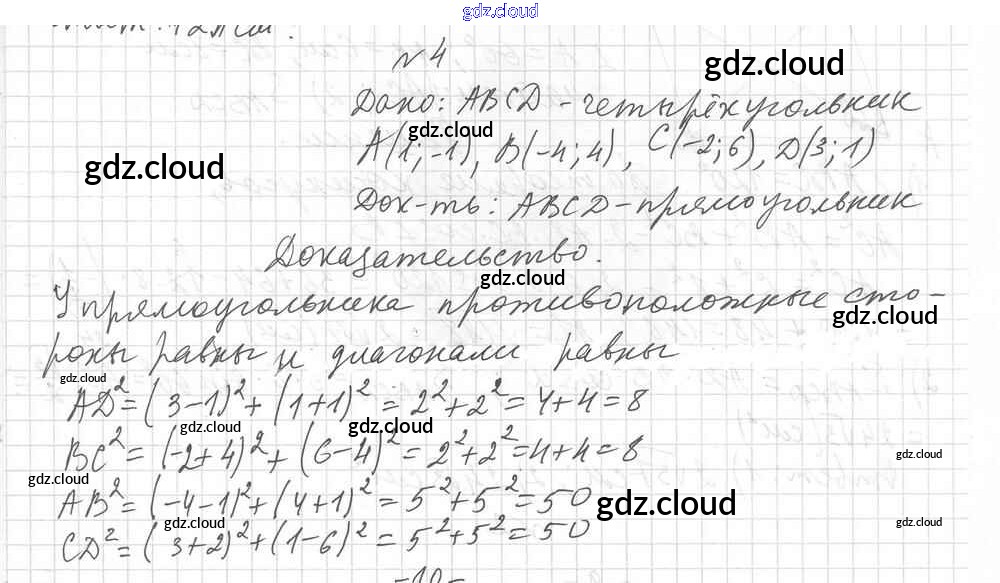 gdz.cloud
№4
gdz.cloud
Дано: ABCD - четырёхугольник
gdz.cloud
A(1; -1), B(-4; 4), C(-2; 6), D(3; 1)
gdz.cloud
Док-ть: ABCD - прямоугольник
Доказательство.
gdz.cloud
У прямоугольника противоположные сто-
gdz.cloud
роны равны и диагонали равны
gdz.cloud
AD² = (3-1)² + (1+1)² = 2² + 2² = 4+4 = 8
gdz.cloud gdz.cloud
BC² = (-2+4)² + (6-4)² = 2² + 2² = 4+4 = 8
gdz.cloud
gdz.cloud
AB² = (-4-1)² + (4+1)² = 5² + 5² = 50
gdz.cloud
gdz.cloud gdz.cloud
CD² = (3+2)² + (1-6)² = 5² + 5² = 50
-10-